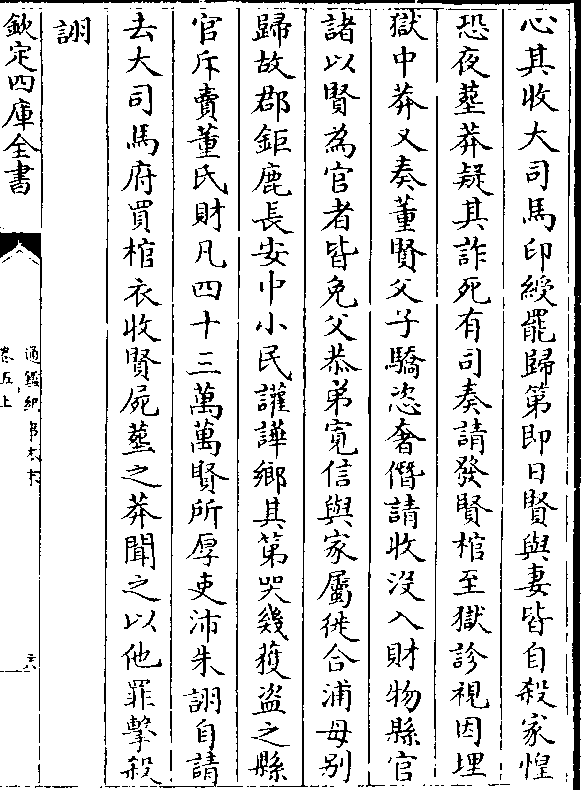 心其收大司馬印綬罷歸第即日賢與妻皆自殺家惶
恐夜塟莽疑其詐死有司奏請發賢棺至獄診視因埋
獄中莽又奏董賢父子驕恣奢僭請收没入財物縣官
諸以賢為官者皆免父恭弟寛信與家屬徙合浦母别
歸故郡鉅鹿長安中小民讙譁鄉其第哭幾獲盗之縣
官斥賣董氏財凡四十三萬萬賢所厚吏沛朱詡自請
去大司馬府買棺衣收賢屍塟之莽聞之以他罪擊殺
詡
欽定四庫全書
通鑑紀事本末
卷五上